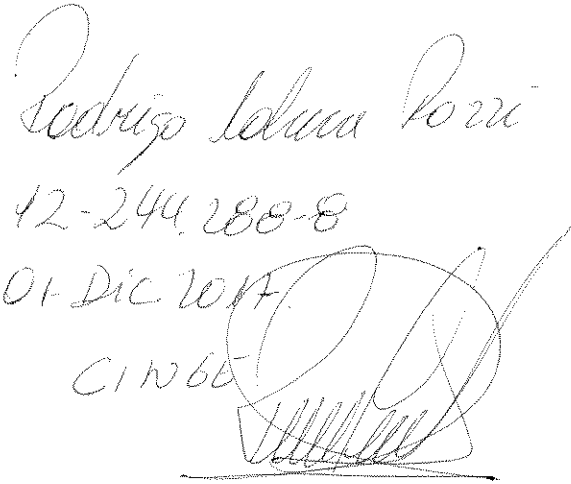 Rodrigo Pozzi
12-244.288-8
01-DiC 2017.